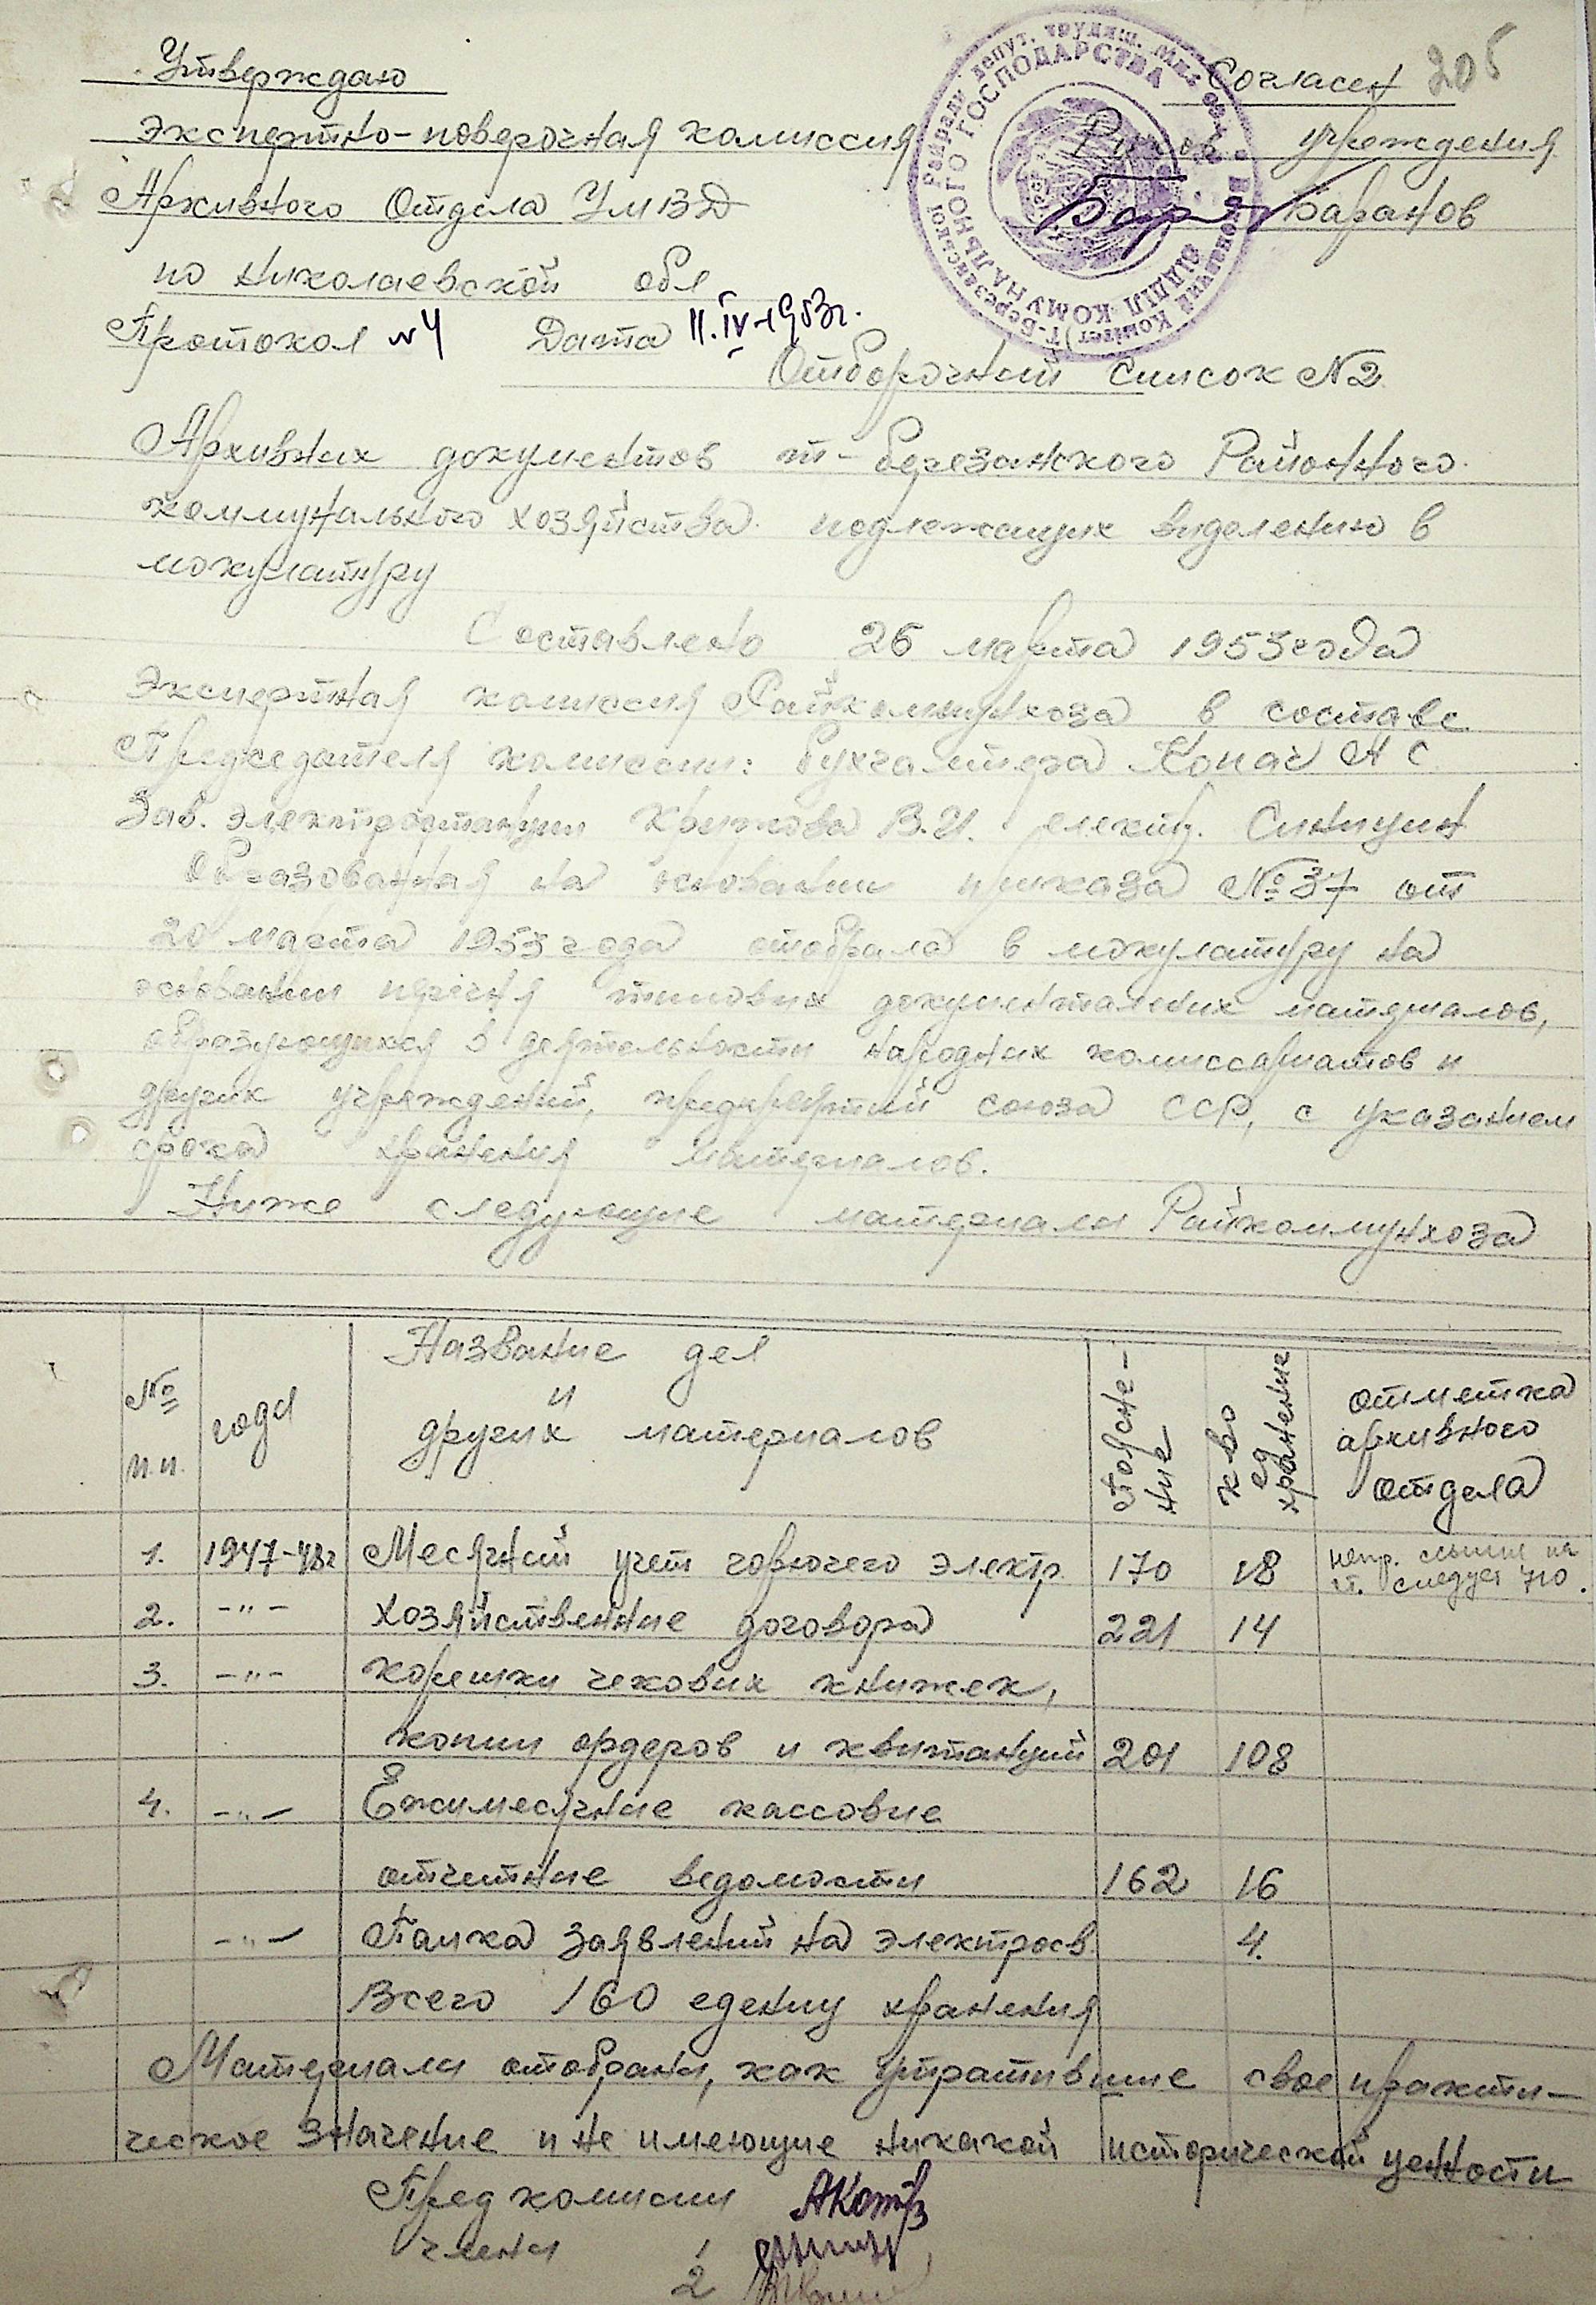 Утверждаю
Согласен 205
Экспертно-поверочная комиссия
Руков. учреждения
Архивного Отдела УМВД
Баранов
по николаевской обл
Протокол №4 Дата 11.IV-1953г.
Отборочный список №2
Архивних документов т-березанского Районного
коммунального хозяйства подлежащих виделению в
мокулатуру
Составлено 26 марта 1953 года
Экспертная комиссия Райкоммунхоза в составе
Председателя комиссии: бухгалтера Копач А С
Зав. электростанции В.И. електр. Синицин
Образованная на основании приказа №37 от
20 марта 1953 года отобрала в мокулатуру на
основании перечня типових документалних материалов,
образующихся в деятельности народних комиссариатов и
других учреждений, предприятий союза ССР, с указанием
срока хранения материалов.
Ниже следующие материали Райкоммунхоза
№№ п.п. годи Название дел и других материалов Пояснение к-во ед хранение отметка архивного отдела
1. 1947-48г Месячний учет горючего электр. 170 18 непр. на ст. следует 710.
2. -"- хозяйственние договора 221 14
3. -"- корешки чекових книжек,
копии ордеров и квитанций 201 108
4. -"- Ежимесячние кассовие
отчетние ведомости 162 16
-"- Папка заявлений на электросв. 4.
Всего 160 едениц хранения
Материали отобрани, как утратившие свое практи-
ческое значение и не имеющие никакой исторической ценности
Пред комисии
члени 1
2